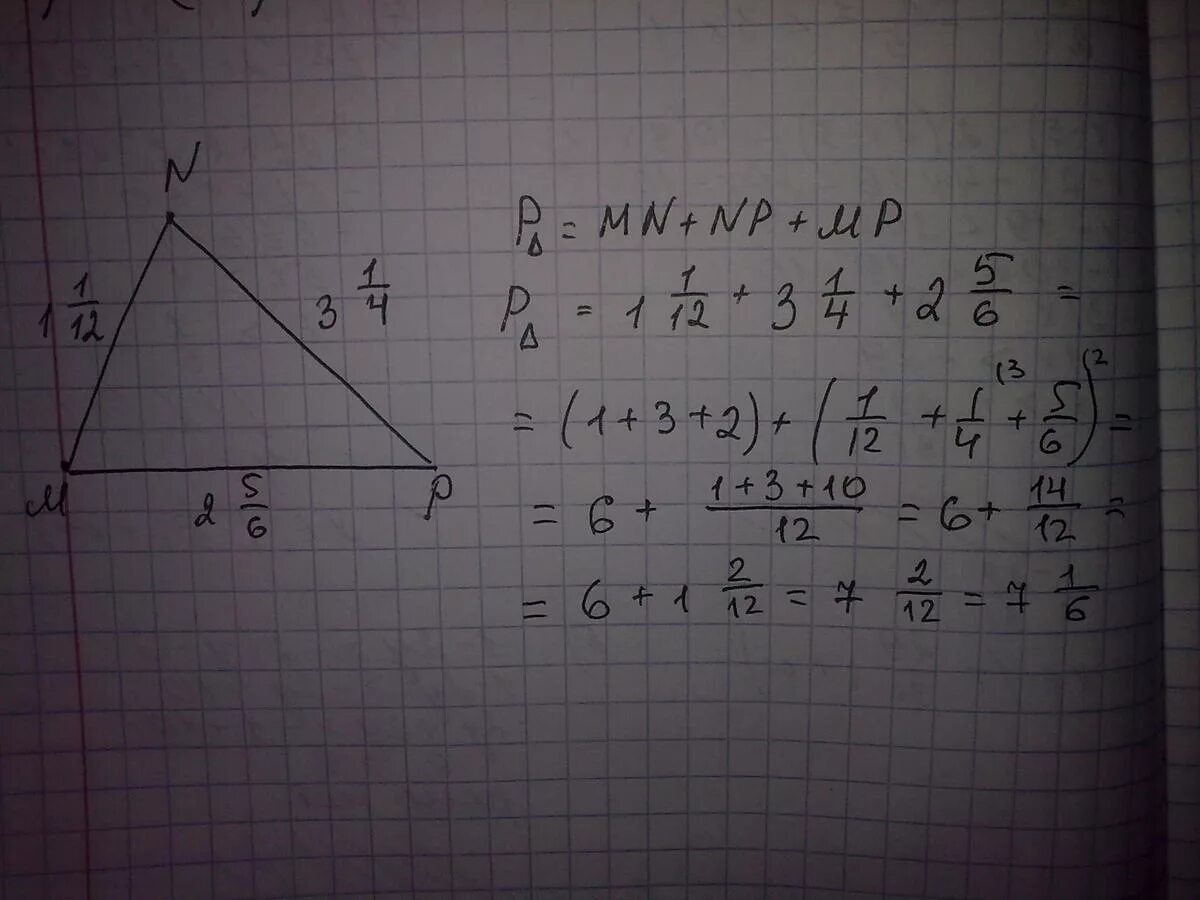 N
1 1/12
3 1/4
M
2 5/6
P
P△ = MN + NP + MP
P△ = 1 1/12 + 3 1/4 + 2 5/6 =
= (1 + 3 + 2) + (1/12 + 1/4 (3 + 5/6 (2) =
= 6 + (1 + 3 + 10)/12 = 6 + 14/12 =
= 6 + 1 2/12 = 7 2/12 = 7 1/6